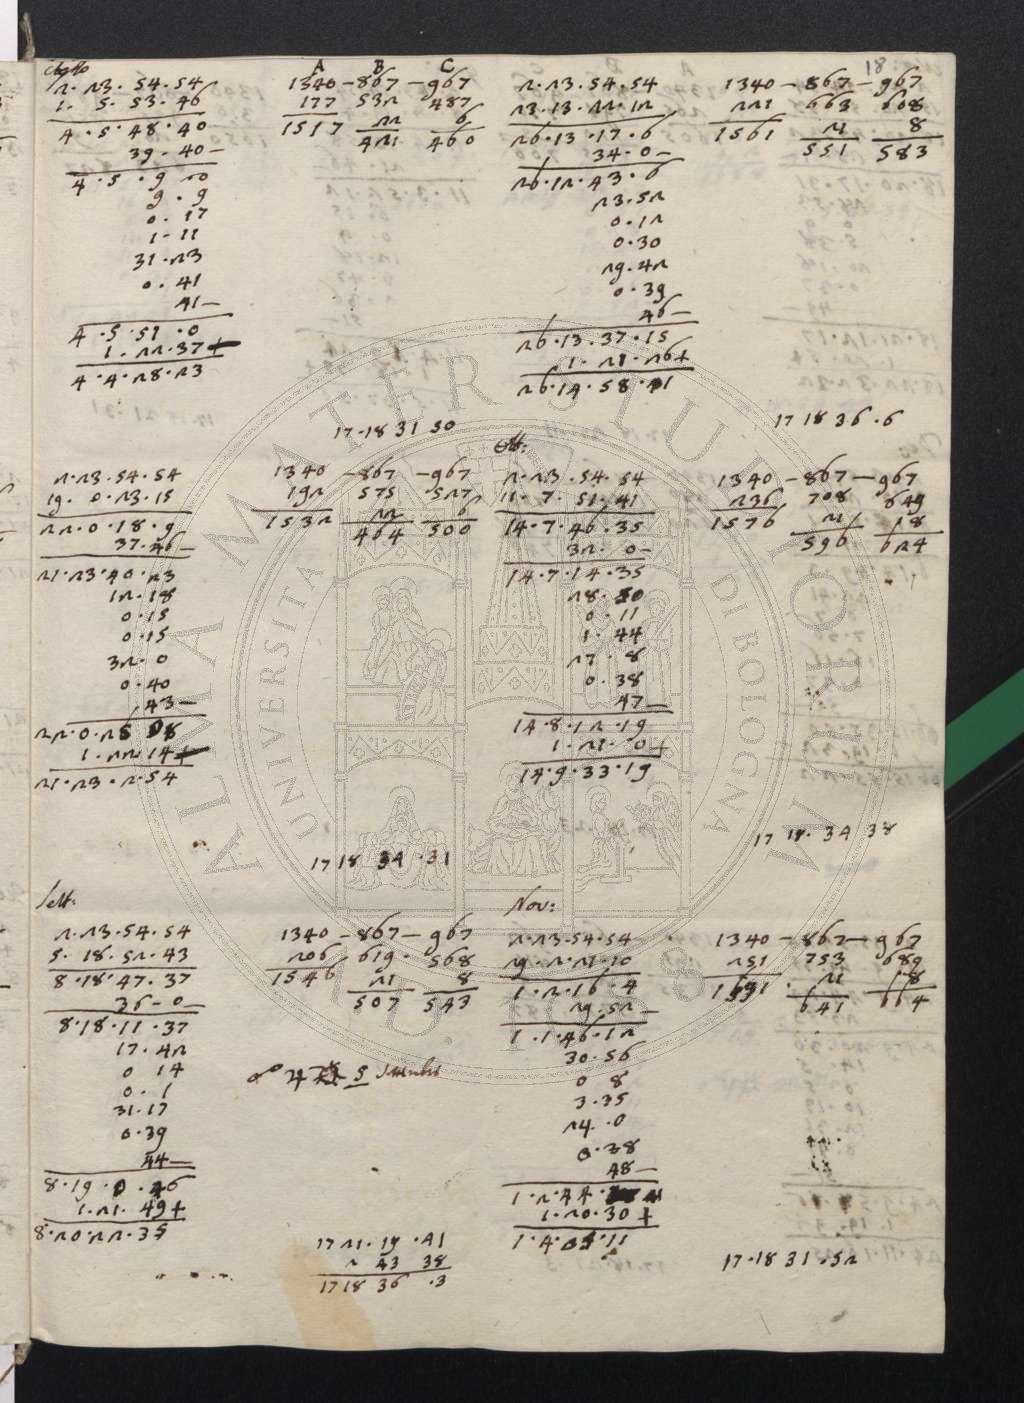 18
A B C
2.23.54.54
1.5.53.46
4.5.48.40
39.40—
4.5.9 20
9.9
0.17
1.11
31.23
0.41
41—
4.5.51.0
1.22.37+
4.4.28.23
1340—867—967
177 532 487
22 6
1517 421 460
17.18 31 30
2.23.54.54
23.13.22.12
26.13.17.6
34.0—
26.12.43.6
23.52
0.12
0.30
29.42
0.39
46—
26.13.37.15
1.21.26+
26.14.58.41
1340—867—967
221 663 608
21 8
1561 551 583
17 18 36.6
2.23.54.54
19.0.23.15
22.0.18.9
37.46—
21.23.40.23
12.18
0.15
0.15
32.0
0.40
43—
22.0.25 28
1.22.14+
21.23.2.54
1340—867—967
192 575 527
22 6
1532 464 500
17 18 34.31
Ott:
2.23.54.54
11.7.51.41
14.7.46.35
32.0—
14.7.14.35
28.50
0.11
1.44
27.8
0.38
47—
14.8.12.19
1.21.0+
14.9.33.19
1340—867—967
236 708 649
21 8
1576 596 624
17 18.34 38
Sett:
2.23.54.54
5.18.52.43
8.18.47.37
36-0—
8.18.11.37
17.42
0 14
0.1
31.17
0.39
44—
8.19.0.46
1.21.49+
8.20.22.35
1340—867—967
206 619 568
21 8
1546 507 543
17 21.19.41
2 43 38
17 18 36.3
Nov:
2.23.54.54
29.2.21.10
1.2.16.4
29.52—
1.1.46.12
30.56
0 8
3.35
24.0
0.38
48—
1.2.44.41
1.20.30+
1.4.05.11
1340—867—967
251 753 689
21 8
1591 641 664
17.18 31.52
ALMA MATER STUDIORUM
UNIVERSITÀ DI BOLOGNA